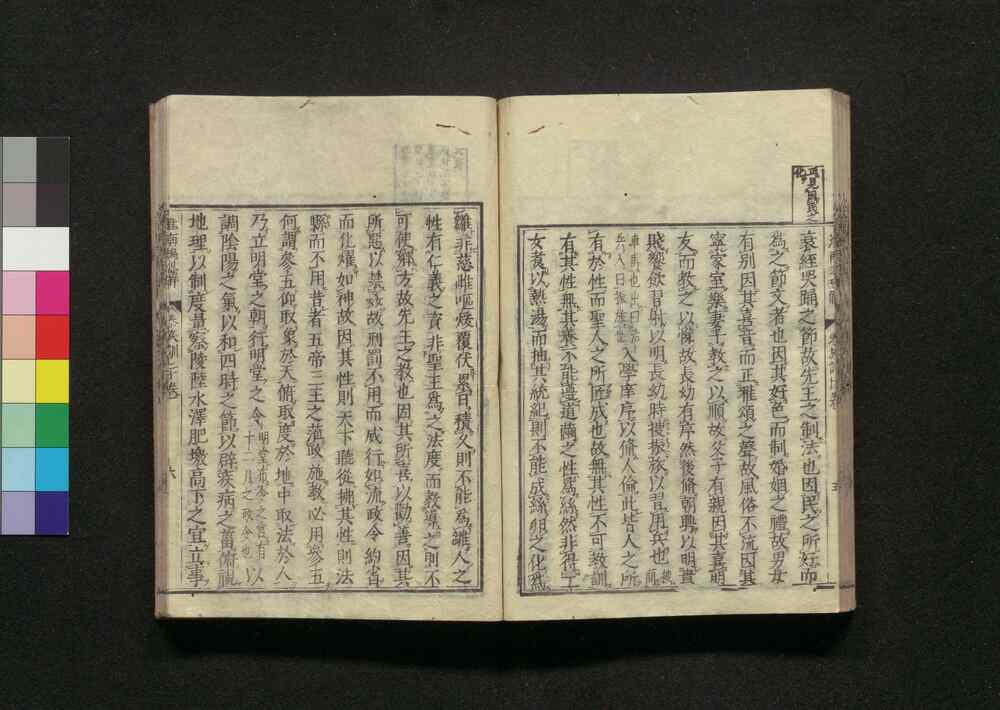 衰絰哭踊之節故先王之制法也因民之所好而
為之節文者也因其好色而制婚姻之禮故男女
有別因其喜音而正雅頌之聲故風俗不流因其
寧家室樂妻子教之以順故父子有親因其喜朋
友而教之以悌故長幼有序然後脩朝聘以明貴
賤饗飲習射以明長幼時搜振旅以習用兵也
入學庠序以脩人倫此皆人之所
有於性而聖人之所匠成也故無其性不可教訓
有其性無其養不能遵道繭之性為絲然非得工
女煑以熱湯而抽其統紀則不能成絲卵之化為
雛非慈雌嘔煖覆伏累日積久則不能為雛人之
性有仁義之資非聖王為之法度而教導之則不
可使鄉方故先王之教也因其所喜以勸善因其
所惡以禁姦故刑罰不用而威行如流政令約省
而化燿如神故因其性則天下聽從拂其性則法
縣而不用昔者五帝三王之蒞政施教必用參五
何謂參五仰取象於天俯取度於地中取法於人
乃立明堂之朝行明堂之令 明堂布政之宮有十二月之政令也 以
調陰陽之氣以和四時之節以辟疾病之菑俯視
地理以制度量察陵陸水澤肥墽高下之宜立事